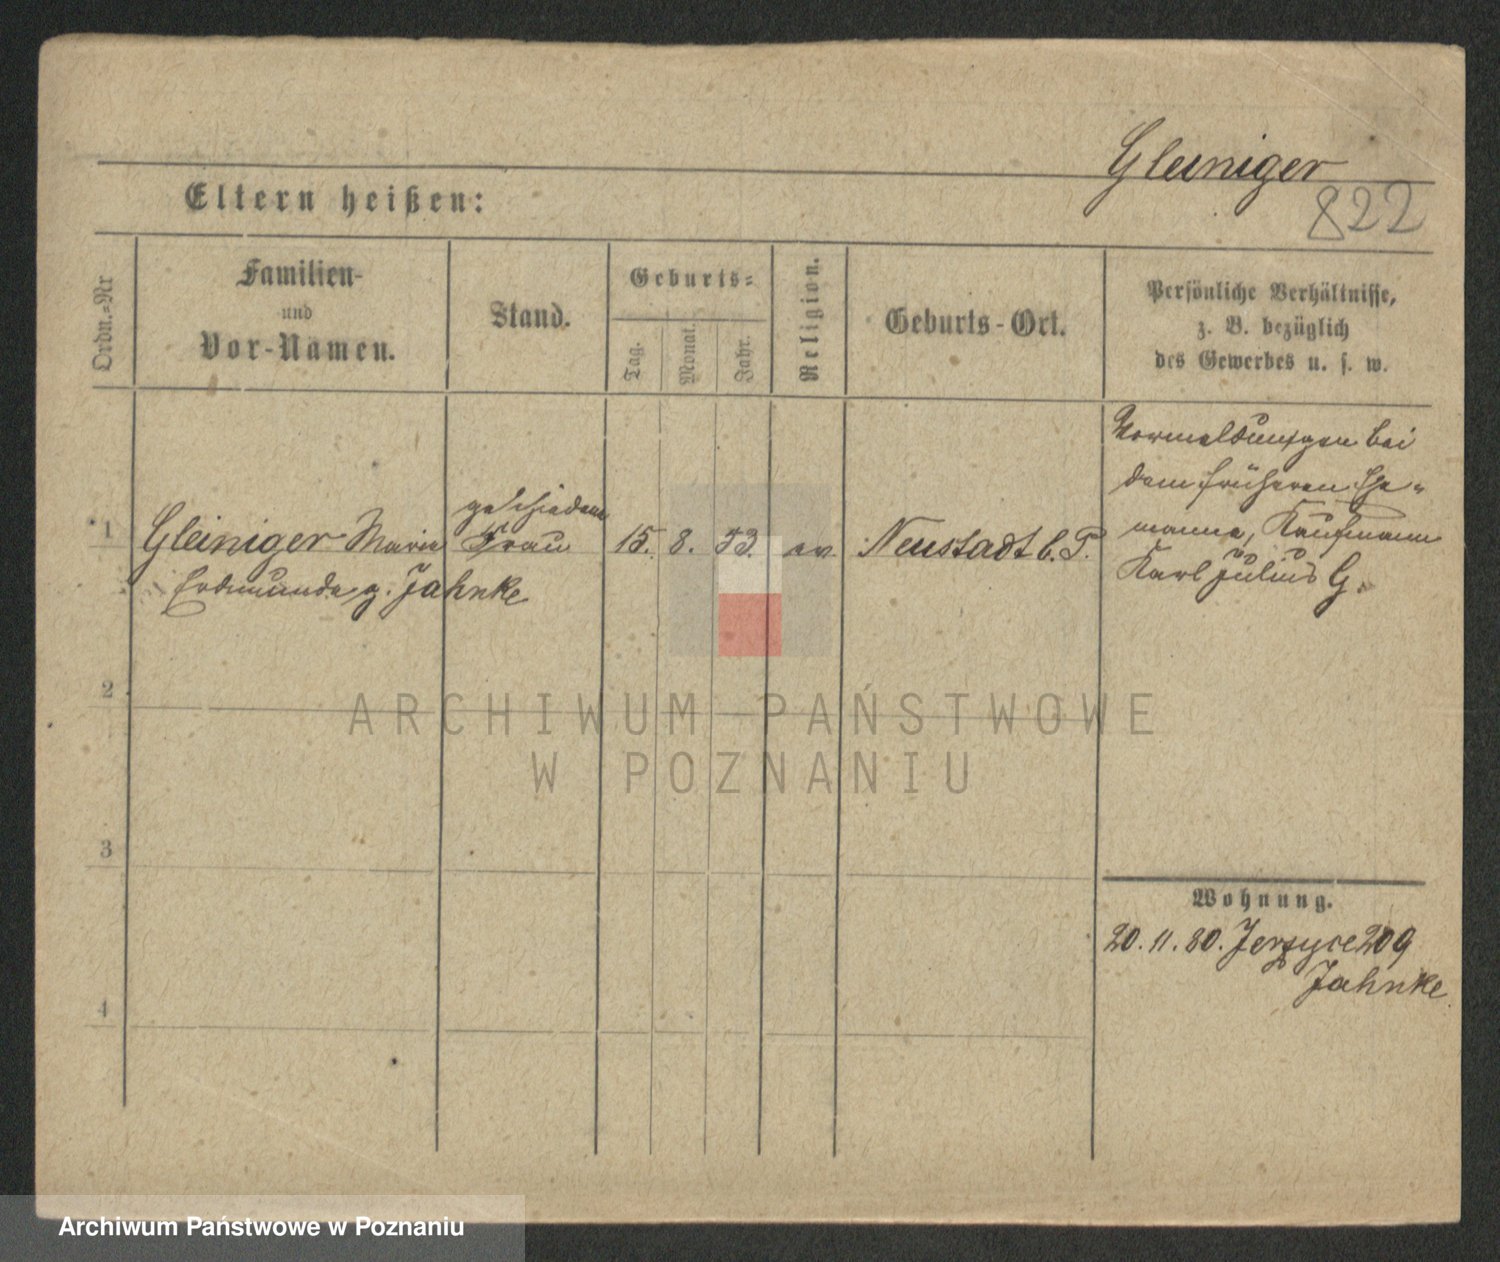 Gleiniger
822
Eltern heißen:
Ordn.=Nr
Familien-
und
Vor-Namen.
Stand.
Geburts=
Tag.
Monat.
Jahr.
Religion.
Geburts-Ort.
Persönliche Verhältnisse,
z. B. bezüglich
des Gewerbes u. s. w.
1
Gleiniger Marie
Erdmunde g. Jahnke
geschiedene
Frau
15. 8. 53.
ev.
Neustadt b. P.
Vormeldungen bei
dem früheren Ehe-
manne, Kaufmann
Karl Julius G.
2
3
4
Wohnung.
20. 11. 80. Jerzyce 209
Jahnke
ARCHIWUM PAŃSTWOWE
W POZNANIU
Archiwum Państwowe w Poznaniu